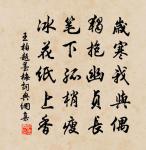 歲寒我與偶
獨抱幽貞長
筆下孤梢瘦
冰花紙上香
王柏題墨梅詞典網集